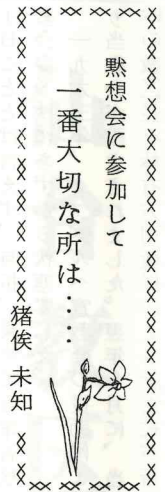 黙想会に参加して
一番大切な所は‥‥
猪俟 未知